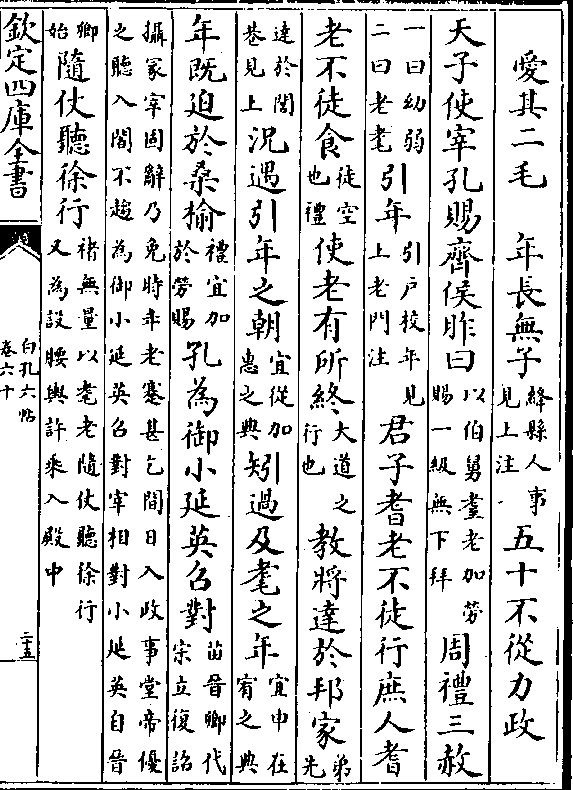 愛其二毛　年長無子絳縣人事見上注五十不從力政
天子使宰孔賜齊侯胙曰以伯舅耋老加勞賜一級無下拜周禮三赦
一曰幼弱二曰老耄引年引戶校年見上老門注君子耆老不徒行庶人耆
老不徒食徒空也禮使老有所終大道之行也教將達於邦家弟先
達於閭巷見上況遇引年之朝宜從加惠之典矧過及耄之年宜申在宥之典
年既迫於桑榆禮宜加於勞賜孔為御小延英召對苖晉卿代宗立復詔
攝冢宰固辭乃免時年老蹇甚乞間日入政事堂帝優之聽入閤不趨為御小延英召對宰相對小延英自晉
卿始隨仗聽徐行禇無量以耄老隨仗聽徐行又為設腰輿許乘入殿中
欽定四庫全書
白孔六帖
卷六十
二十五